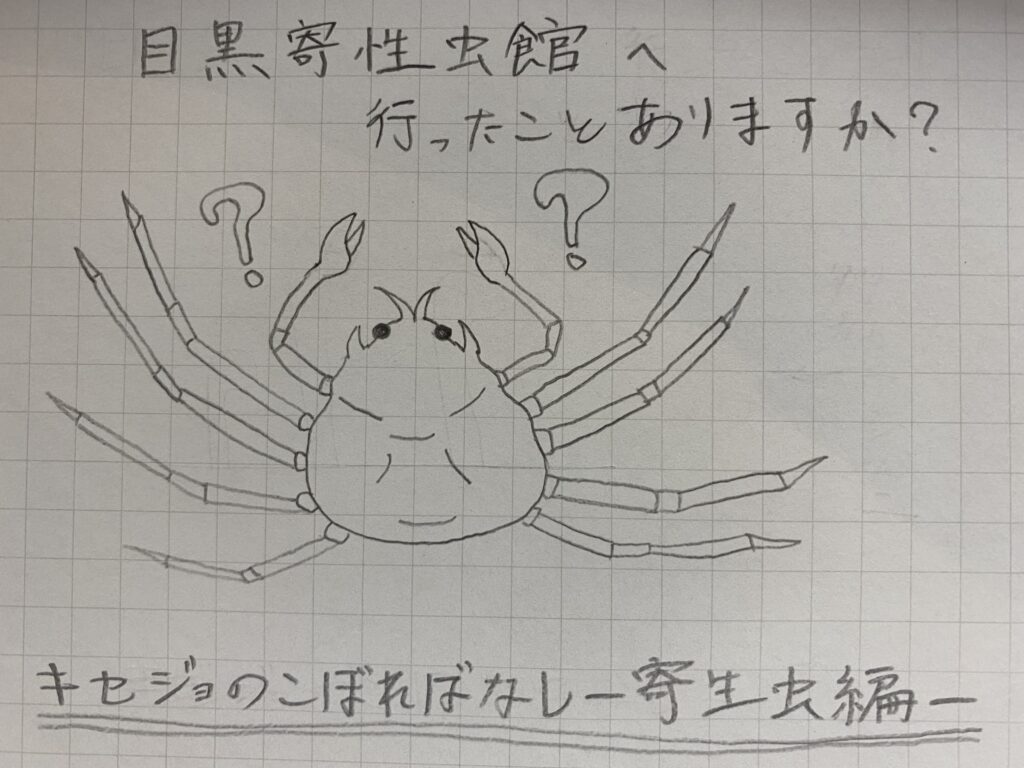 目黒寄性虫館へ
行ったことありますか?
? ?
キセジョのこぼればなしー寄生虫編ー